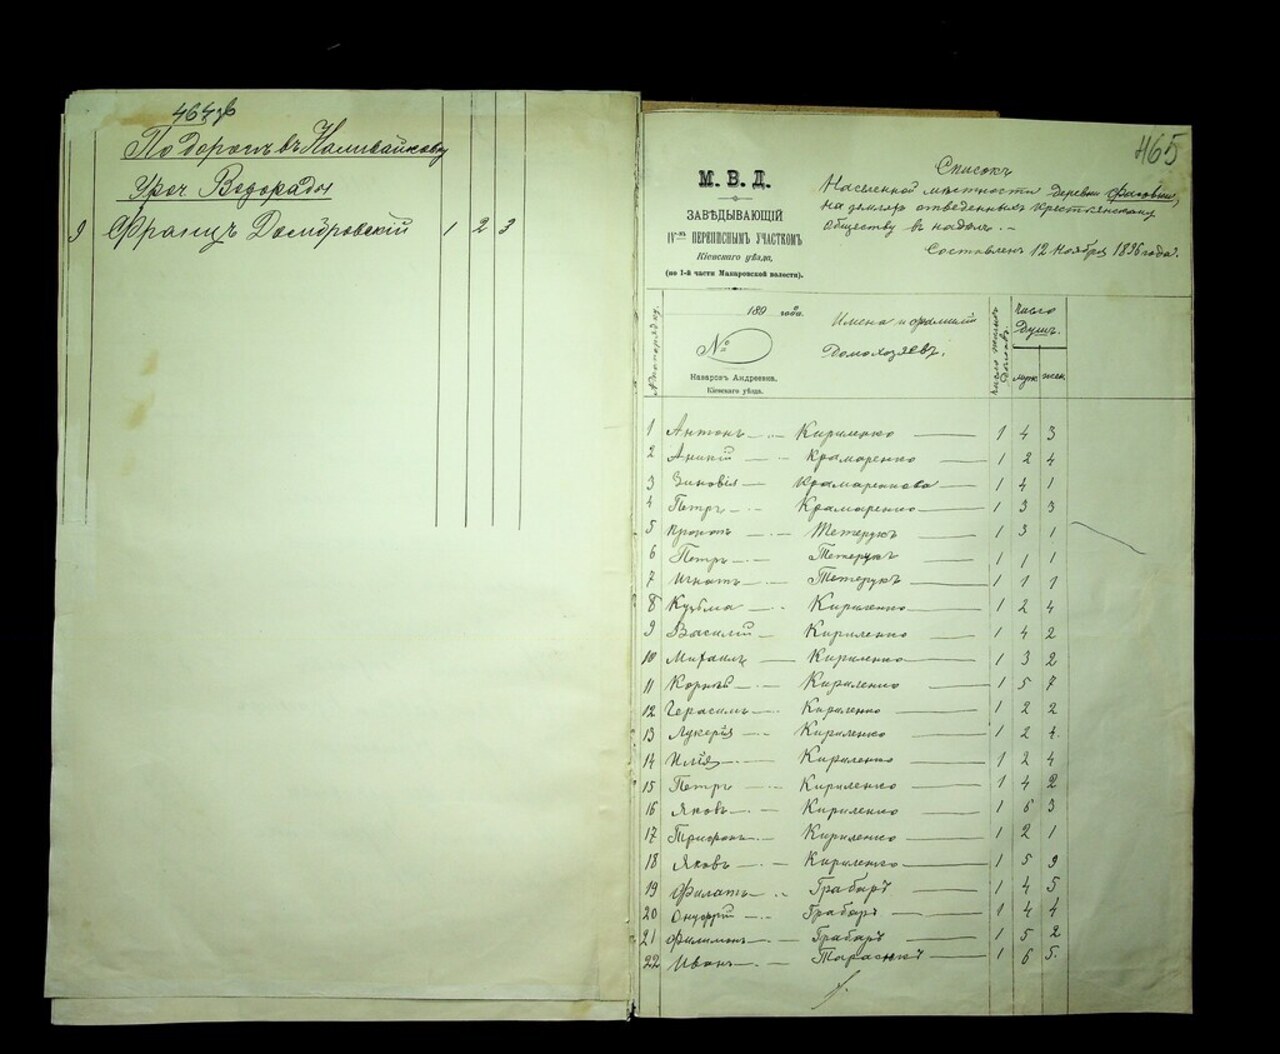 464 об
По дорогѣ въ Наливайковку
Уроч. Водорады
9 Францъ Домбровскій 1 2 3
465
М. В. Д.
ЗАВѢДЫВАЮЩІЙ
IV-мъ ПЕРЕПИСНЫМЪ УЧАСТКОМЪ
Кіевскаго уѣзда,
(по 1-й части Макаровской волости).
Списокъ
Населенной мѣстности деревни
на земляхъ отведенныхъ крестьянскому
обществу въ надѣлъ. –
Составленъ 12 Ноября 1896 года.
189 года.
№
Назаровъ Андреевка,
Кіевскаго уѣзда.
№ по порядку.
Имена и фамиліи
Домохозяевъ.
Число
Число
Душъ.
муж. жен.
1 Антонъ Кириленко 1 4 3
2 Аникій Крамаренко 1 2 4
3 Зиновія Крамаренкова 1 4 1
4 Петръ Крамаренко 1 3 3
5 Прокопъ Тетерукъ 1 3 1
6 Петръ Тетерукъ 1 1 1
7 Игнатъ Тетерукъ 1 1 1
8 Кузьма Кириленко 1 2 4
9 Василій Кириленко 1 4 2
10 Михаилъ Кириленко 1 3 2
11 Корнѣй Кириленко 1 5 7
12 Герасимъ Кириленко 1 2 2
13 Лукерія Кириленко 1 2 4.
14 Илія Кириленко 1 2 4
15 Петръ Кириленко 1 4 2
16 Яковъ Кириленко 1 6 3
17 Трифонъ Кириленко 1 2 1
18 Яковъ Кириленко 1 5 9
19 Филатъ Грабаръ 1 4 5
20 Онуфрій Грабаръ 1 4 4
21 Филимонъ Грабаръ 1 5 2
22 Иванъ Тарасюкъ 1 6 5.